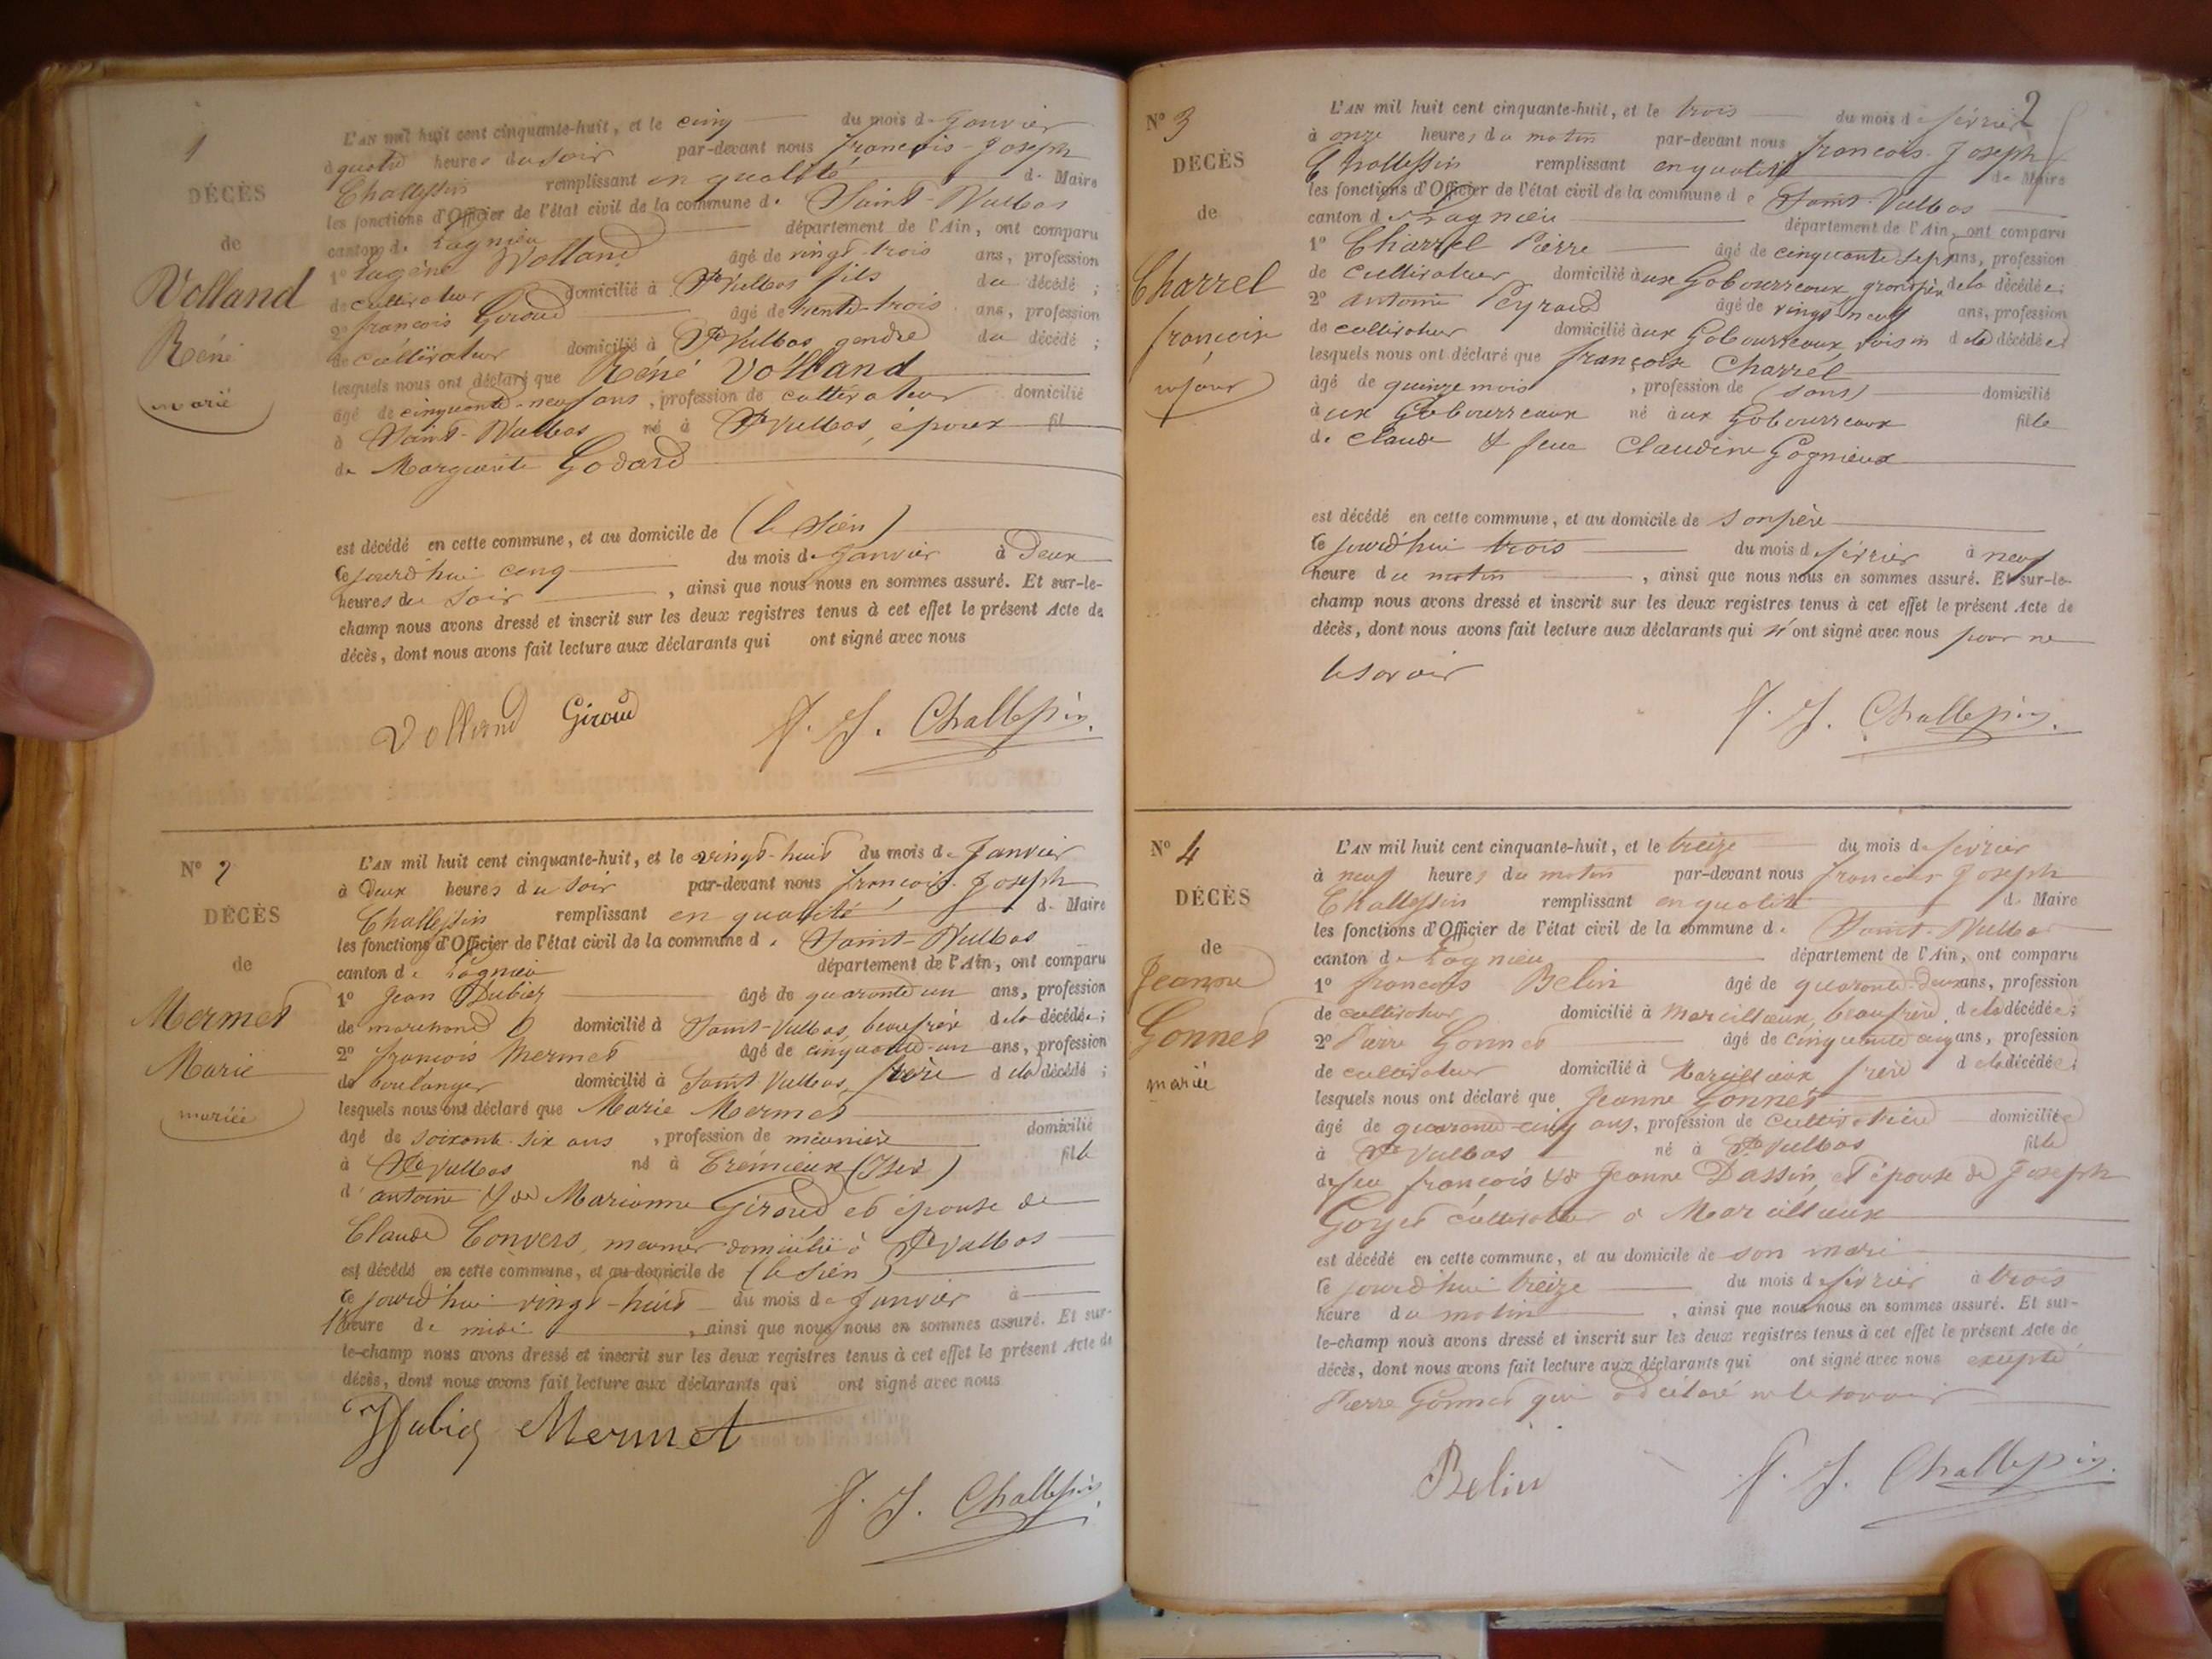 1
DÉCÈS
de
Volland
René
marié
L'AN mil huit cent cinquante-huit, et le cinq du mois de Janvier
à quatre heures du soir par-devant nous françois-Joseph
Challessin remplissant en qualité de Maire
les fonctions d'Officier de l'état civil de la commune de Saint-Vulbas
canton de Lagnieu département de l'Ain, ont comparu
1° Eugène Volland âgé de vingt-trois ans, profession
de cultivateur domicilié à St Vulbas fils du décédé ;
2° françois Giroud âgé de trente-trois ans, profession
de cultivateur domicilié à St Vulbas gendre du décédé ;
lesquels nous ont déclaré que René Volland
âgé de cinquante-neuf ans, profession de cultivateur domicilié
à Saint-Vulbas né à St Vulbas, époux fil
de Marguerite Godard
est décédé en cette commune, et au domicile de (le sien)
Ce jourd'hui cinq du mois de Janvier à Deux
heures du soir, ainsi que nous nous en sommes assuré. Et sur-le-
champ nous avons dressé et inscrit sur les deux registres tenus à cet effet le présent Acte de
décès, dont nous avons fait lecture aux déclarants qui ont signé avec nous
Volland Giroud F. J. Challessin.
N° 2
DÉCÈS
de
Mermet
Marie
mariée
L'AN mil huit cent cinquante-huit, et le vingt-huit du mois de Janvier
à Deux heures du soir par-devant nous françois-Joseph
Challessin remplissant en qualité de Maire
les fonctions d'Officier de l'état civil de la commune de Saint-Vulbas
canton de Lagnieu département de l'Ain, ont comparu
1° Jean Dubiez âgé de quarante un ans, profession
de marchand domicilié à Saint-Vulbas, beaufrère de la décédée ;
2° françois Mermet âgé de cinquante-un ans, profession
de boulanger domicilié à Saint-Vulbas, frère de la décédé ;
lesquels nous ont déclaré que Marie Mermet
âgé de soixante-six ans, profession de meunière domicilié
à St Vulbas né à Crémieux (Isère) fille
d'antoine & de Marianne Giroud et épouse de
Claude Convers, meunier domicilié à St Vulbas
est décédé en cette commune, et au domicile de (le sien)
Ce jourd'hui vingt-huit du mois de Janvier à
heure de midi, ainsi que nous nous en sommes assuré. Et sur-
le-champ nous avons dressé et inscrit sur les deux registres tenus à cet effet le présent Acte de
décès, dont nous avons fait lecture aux déclarants qui ont signé avec nous
Mermet
F. J. Challessin
2
N° 3
DÉCÈS
de
Charrel
françoise
L'AN mil huit cent cinquante-huit, et le trois du mois de février
à onze heures du matin par-devant nous françois-Joseph
Challessin remplissant en qualité de Maire
les fonctions d'Officier de l'état civil de la commune de Saint-Vulbas
canton de Lagnieu département de l'Ain, ont comparu
1° Charrel Pierre âgé de cinquante sept ans, profession
de cultivateur domicilié aux Gobourreaux grandpère de la décédée ;
2° antoine Peyraud âgé de vingt-neuf ans, profession
de cultivateur domicilié aux Gobourreaux voisin de la décédée
lesquels nous ont déclaré que françoise Charrel
âgé de quinze mois, profession de (sans) domicilié
aux Gobourreaux né aux Gobourreaux fille
de Claude & feue Claudine Gagnieux
est décédé en cette commune, et au domicile de son père
Ce jourd'hui trois du mois de février à neuf
heure du matin, ainsi que nous nous en sommes assuré. Et sur-le-
champ nous avons dressé et inscrit sur les deux registres tenus à cet effet le présent Acte de
décès, dont nous avons fait lecture aux déclarants qui n'ont signé avec nous pour ne
le savoir
F. J. Challessin.
N° 4
DÉCÈS
de
Jeanne
Gonnet
mariée
L'AN mil huit cent cinquante-huit, et le treize du mois de février
à neuf heures du matin par-devant nous françois Joseph
Challessin remplissant en qualité de Maire
les fonctions d'Officier de l'état civil de la commune de Saint-Vulbas
canton de Lagnieu département de l'Ain, ont comparu
1° françois Belin âgé de quarante-deux ans, profession
de cultivateur domicilié à Marcilleux, beaufrère de la décédée ;
2° Pierre Gonnet âgé de cinquante cinq ans, profession
de cultivateur domicilié à Marcilleux frère de la décédée ;
lesquels nous ont déclaré que Jeanne Gonnet
âgé de quarante-cinq ans, profession de cultivatrice domiciliée
à St Vulbas né à St Vulbas fille
de feu françois & de Jeanne Dassin et épouse de Joseph
Goyet cultivateur à Marcilleux
est décédé en cette commune, et au domicile de son mari
Ce jourd'hui treize du mois de février à trois
heure du matin, ainsi que nous nous en sommes assuré. Et sur-
le-champ nous avons dressé et inscrit sur les deux registres tenus à cet effet le présent Acte de
décès, dont nous avons fait lecture aux déclarants qui ont signé avec nous excepté
Pierre Gonnet qui a déclaré ne le savoir
Belin F. J. Challessin.